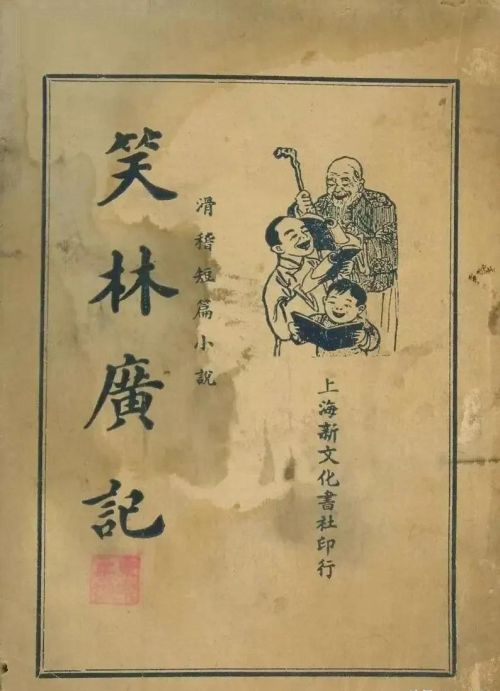 上海新文化書社印行
滑稽短篇小說
笑林廣記